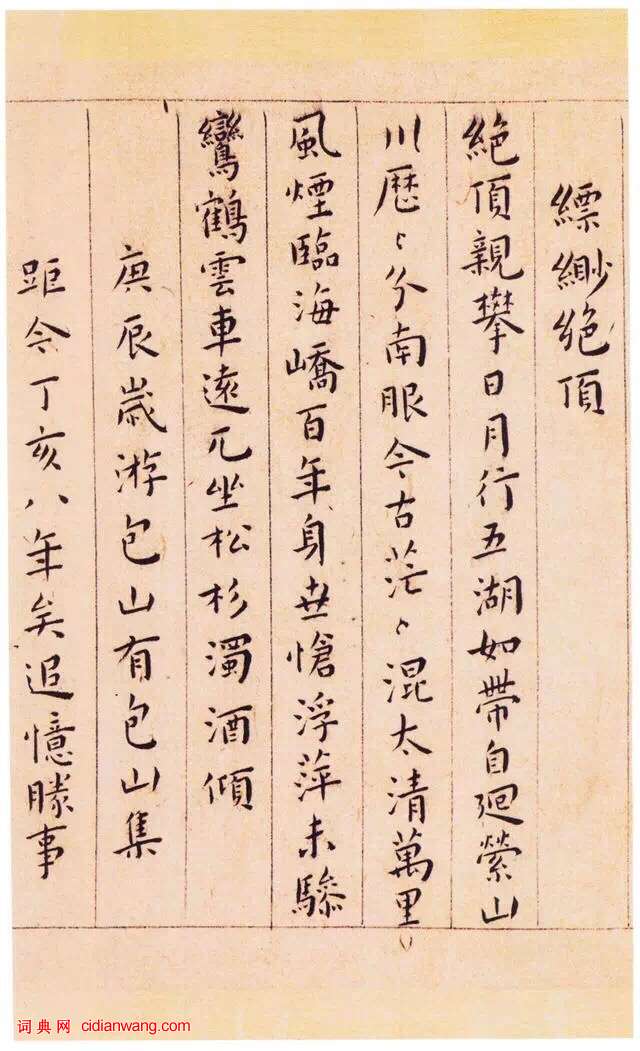 縹緲絶頂
絶頂親攀日月行五湖如帶自迴縈山
川歴〻分南眼今古茫〻混太清萬里
風煙臨海嶠百年身世愴浮萍未驂
鸞鶴雲車遠兀坐松杉濁酒傾
庚辰歲游包山有包山集
距今丁亥八年矣追憶勝事
词典网 cidianwang.com